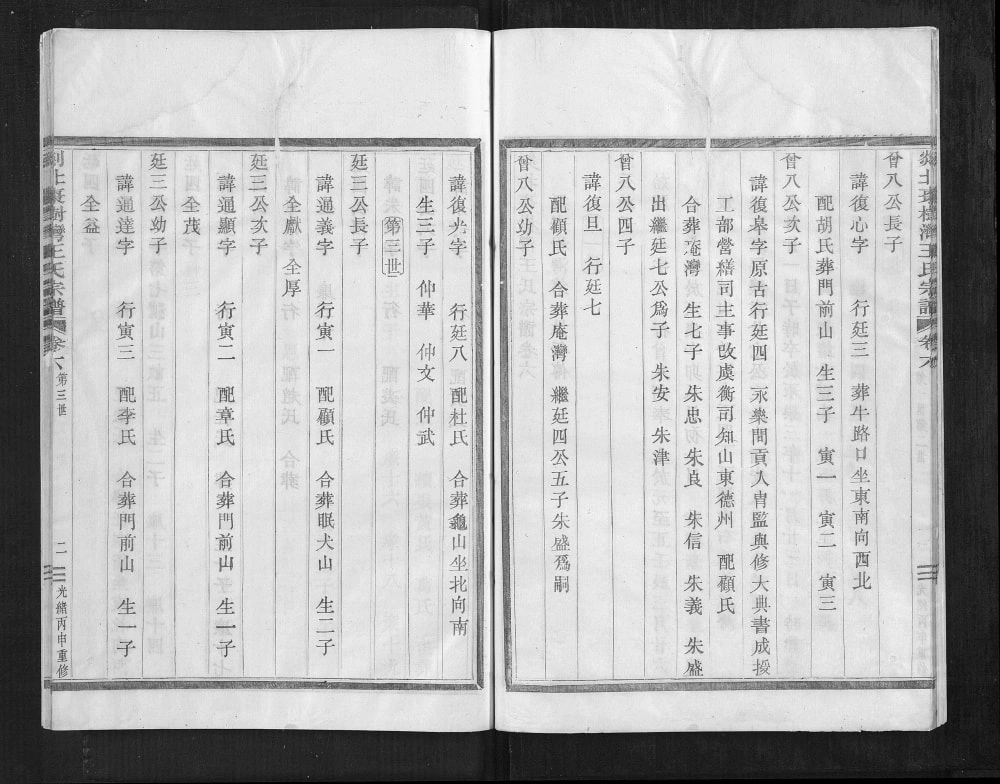 曾八公長子
諱復心字 行廷三 葬牛路口坐東南向西北
配胡氏葬門前山 生三子 寅一 寅二 寅三
曾八公次子
諱復皋字原古行廷四公永樂間貢入胄監與修大典書成授
工部營繕司主事改虞衡司知山東德州 配顧氏
合葬庵灣 生七子 朱忠 朱良 朱信 朱義 朱盛
出繼廷七公爲子 朱安 朱津
曾八公四子
諱復旦 行廷七
配顧氏 合葬庵灣 繼廷四公五子朱盛爲嗣
曾八公幼子
諱復光字 行廷八 配杜氏 合葬龜山坐北向南
生三子 仲華 仲文 仲武
第三世
廷三公長子
諱通義字 行寅一 配顧氏 合葬眠犬山 生二子
全獻 全厚
廷三公次子
諱通顯字 行寅二 配章氏 合葬門前山 生一子
全茂
廷三公幼子
諱通達字 行寅三 配李氏 合葬門前山 生一子
全益
剡北 樹灣王氏宗譜 卷六 第三世 二 光緒丙申重修